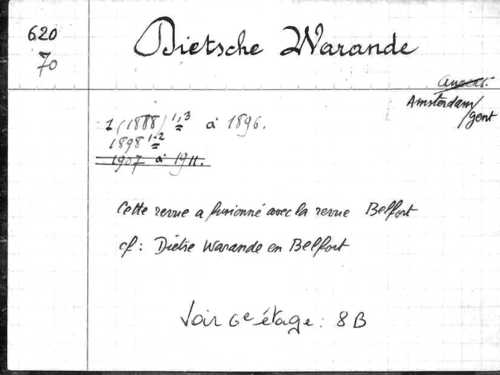 620
70
Dietsche Warande
Amsterdam/
gent
1 (1888) 1,3 à 1896.
1898 1-2
1907 à 1911.
Cette revue a fusionné avec la revue Belfort
cf: Dietse Warande en Belfort
Voir 6e étage: 8B